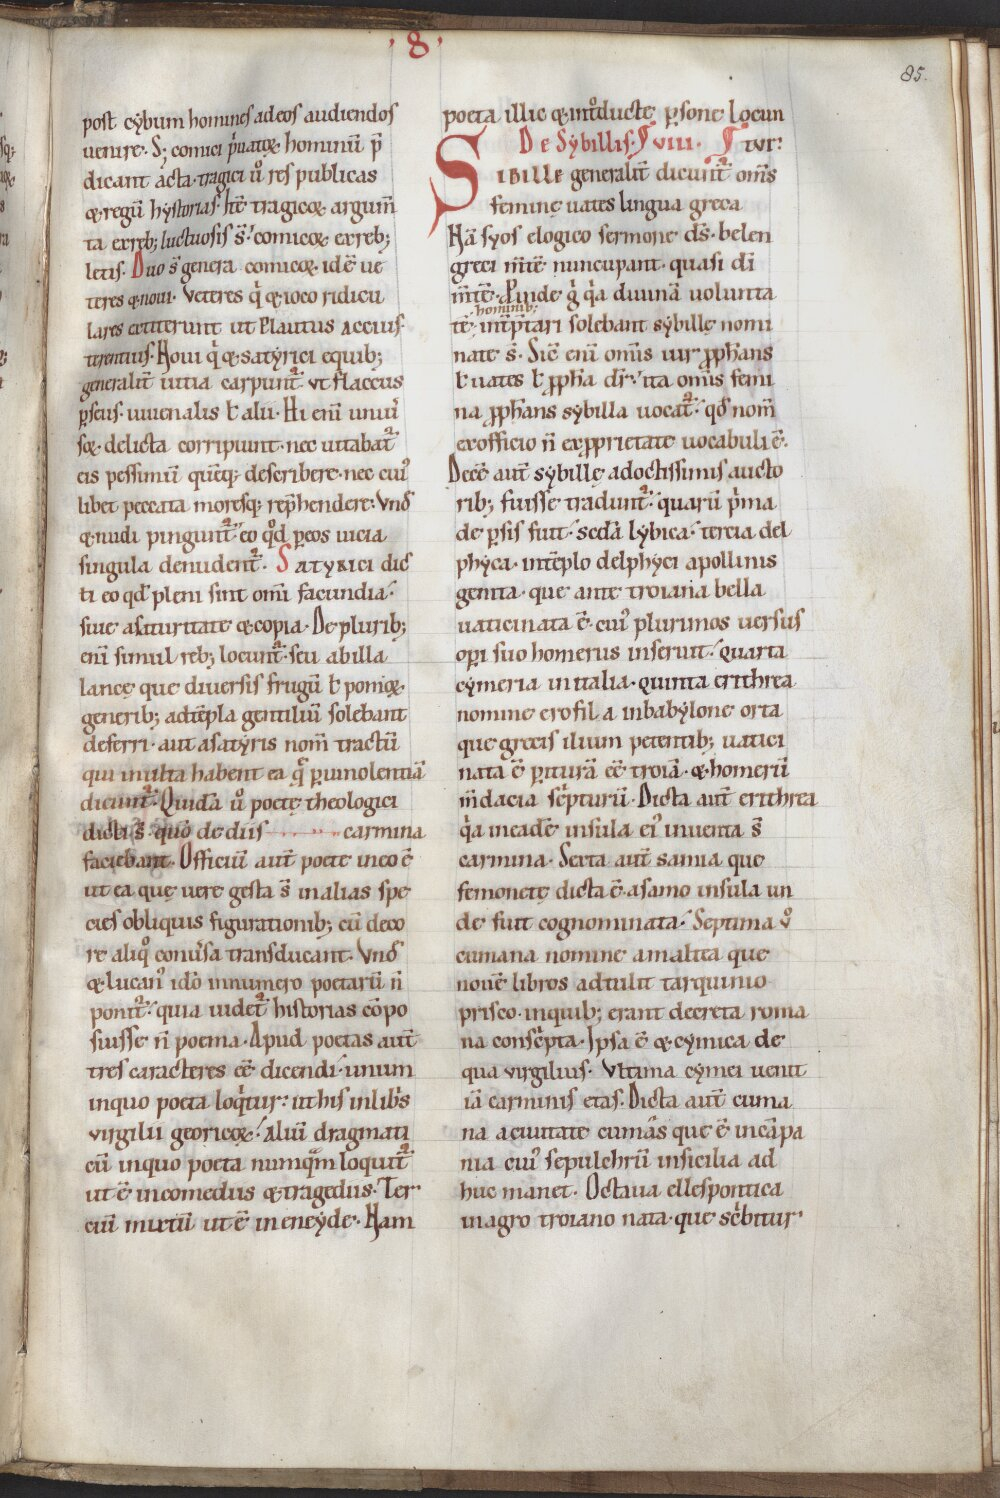 ·8·
85.
post cybum homines ad eos audiendos
uenire. S; comici p̍uatoꝝ hominū p̄
dicant acta. tragici ů res publicas
& regū hystorias. Itē tragicoꝝ argum̄
ta ex reb; luctuosis s̄. comicoꝝ ex reb;
letis. Duo s̄ genera comicoꝝ. id ē ue
teres & noui. Veteres q̍ & ioco ridicu
lares extiterunt ut Plautus Accius
terentius. Noui q̍ & satyrici e quib;
generalit̄ uitia carpunt᷑ ut flaccus
ꝑseus. iuuenalis ƚ alii. Hi enī uniu̍
soꝝ delicta corripiunt. nec uitabat᷑
eis pessimū quēq; describere. nec cui᷒
libet peccata moresq; rep̄hendere. Vnđ
& nudi pingunt᷑. eo qd̊ ꝑ eos uicia
singula denudent᷑. Satyrici dic
ti eo qđ pleni sint omī facundia.
siue a saturitate & copia. De plurib;
enī simul reb; locunt᷑. seu ab illa
lance que diuersis frugū ƚ pomoꝝ
generib; ad tēpla gentiliū solebant
deferri. aut a satyris nom̄ tractū
qui inulta habent ea q̄ ꝑ uinolentiā
dicunt᷑. Quidā ů poetę theologici
dicti s̄. quō de diis carmina
faciebant. Officiū aut̄ poete in eo ē
ut ea que uere gesta s̄ in alias spe
cies obliquis figurationib; cū deco
re aliq̊ conu̍sa transducant. Vnđ
& lucan᷒ idō in numero poetarū n̄
ponit᷑. quia uidet᷑ historias cōpo
suisse n̄ poema. Apud poetas aut̄
tres caracteres eē dicendi. unum
in quo poeta loq̍tur. ut his in lib̍s
virgilii georicoꝝ. Aliū dragmati
cū in quo poeta numq̄m loquit᷑
ut ē in comediis & tragediis. Ter
ciū mixtū ut ē in eneyde. Nam
poeta illic & int̊ducte ꝑsone locun
De Sybillis. VIII. tur.
Sibille generalit̄ dicunt᷑ om̄s
feminę uates lingua greca
Nā syos elogico sermone ds̄. belen
greci m̄tē nuncupant. quasi dī
m̄tē. Proinde g̍ q̍a diuinā uolunta
hominib;
tē int̄p̄tari solebant sybillę nomi
nate s̄. Sic̄ enī om̄s uir ꝓph̄ans
ƚ uates ƚ ꝓph̄a dr̄. ita om̄s femi
na ꝓph̄ans sybilla uocat᷑. qđ nom̄
ex officio n̄ ex ꝓprietate uocabuli ē.
Decē aut̄ sybillę a doctissimis aucto
rib; fuisse tradunt᷑. quarū p̍ma
de ꝑsis fuit. scđa lybica. tercia del
phyca. in tēplo delphyci apollinis
genita. que ante troiana bella
uaticinata ē. cui᷒ plurimos uersus
oꝑi suo homerus inseruit. Quarta
cymeria in italia. quinta erithrea
nomine erofila in babylone orta
que grecis ilium petentib; uatici
nata ē ꝑiturā eē troiā. & homerū
m̄dacia sc̍pturū. Dicta aut̄ erithrea
q̍a in eadē insula ei᷒ inuenta s̄
carmina. Sexta aut̄ samia que
femonete dicta ē. a samo insula un
de fuit cognominata. Septima ů
cumana nomine amaltea que
nouē libros adtulit tarquinio
prisco. in quib; erant decreta roma
na consc̍pta. Ipsa ē & cymica de
qua virgilius. Vltima cymei uenit
iā carminis etas. Dicta aut̄ cuma
na a ciuitate cumās que ē in cāpa
nia cui᷒ sepulchrū in sicilia ad
huc manet. Octaua ellespontica
in agro troiano nata. que sc̍bitur